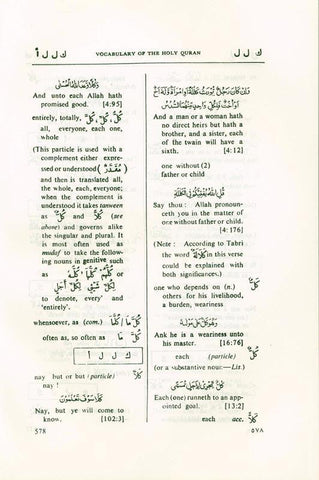 ك ل ل
VOCABULARY OF THE HOLY QURAN
ك ل ل أ
وَإِنْ كَانَ رَجُلٌ يُورَثُ كَلَالَةً أَوِ امْرَأَةٌ وَلَهُ أَخٌ
أَوْ أُخْتٌ فَلِكُلِّ وَاحِدٍ مِنْهُمَا السُّدُسُ
And a man or a woman hath
no direct heirs but hath a
brother, and a sister, each
of the twain will have a
sixth. [4:12]
one without (2)
father or child
قُلِ اللّٰهُ يُفْتِيكُمْ فِي الْكَلَالَةِ
Say thou: Allah pronoun-
ceth you in the matter of
one without father or child.
[4:176]
(Note: According to Tabri
the word كَلَالَةٌ in this verse
could be explained with
both significances.)
كَلٌّ
one who depends on (n.)
others for his livelihood,
a burden, weariness
وَهُوَ كَلٌّ عَلَى مَوْلَاهُ
Ank he is a weariness unto
his master. [16:76]
each (particle) كُلٌّ
(or a substantive noun—Lis.)
كُلٌّ يَجْرِي لِأَجَلٍ مُسَمًّى
Each (one) runneth to an app-
ointed goal. [13:2]
each acc. كُلًّا
وَكُلًّا وَعَدَ اللّٰهُ الْحُسْنَى
And unto each Allah hath
promised good. [4:95]
entirely, totally, كُلٌّ، كُلٍّ
all, everyone, each one,
whole
(This particle is used with a
complement either expre-
ssed or understood (مُقَدَّرٌ)
and then is translated all,
the whole, each, everyone;
when the complement is
understood it takes tanween
as كُلٌّ and كُلًّا (see
above) and governs alike
the singular and plural. It
is most often used as
mudaf to take the follow-
ing nouns in genitive such
as كُلُّهُمْ or كُلُّهَا
لِكُلِّ شَيْءٍ لِكُلِّ أَجَلٍ
to denote, every' and
'entirely'.
whensoever, as (com.) كُلَّ مَا / كُلَّمَا
often as, so often as كُلَّ مَا
ك ل ل أ
nay but or but (particle) كَلَّا
nay !
كَلَّا سَوْفَ تَعْلَمُونَ
Nay, but ye will come to
know. [102:3]
578
٥٧٨